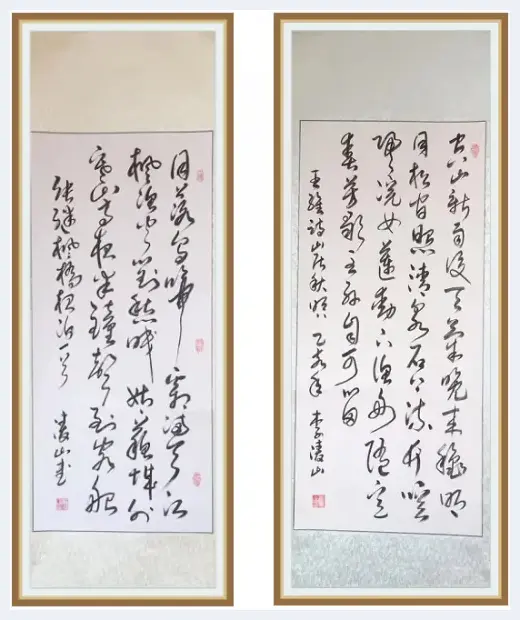 月落乌啼霜满天江
枫渔火对愁眠姑苏城外
寒山寺夜半鐘声到客船
张继枫桥夜泊一首
凌山书
空山新雨后天气晚来秋明
月松间照清泉石上流竹喧
归浣女莲动下渔舟随意
春芳歇王孙自可留
王维诗山居秋暝
李凌山